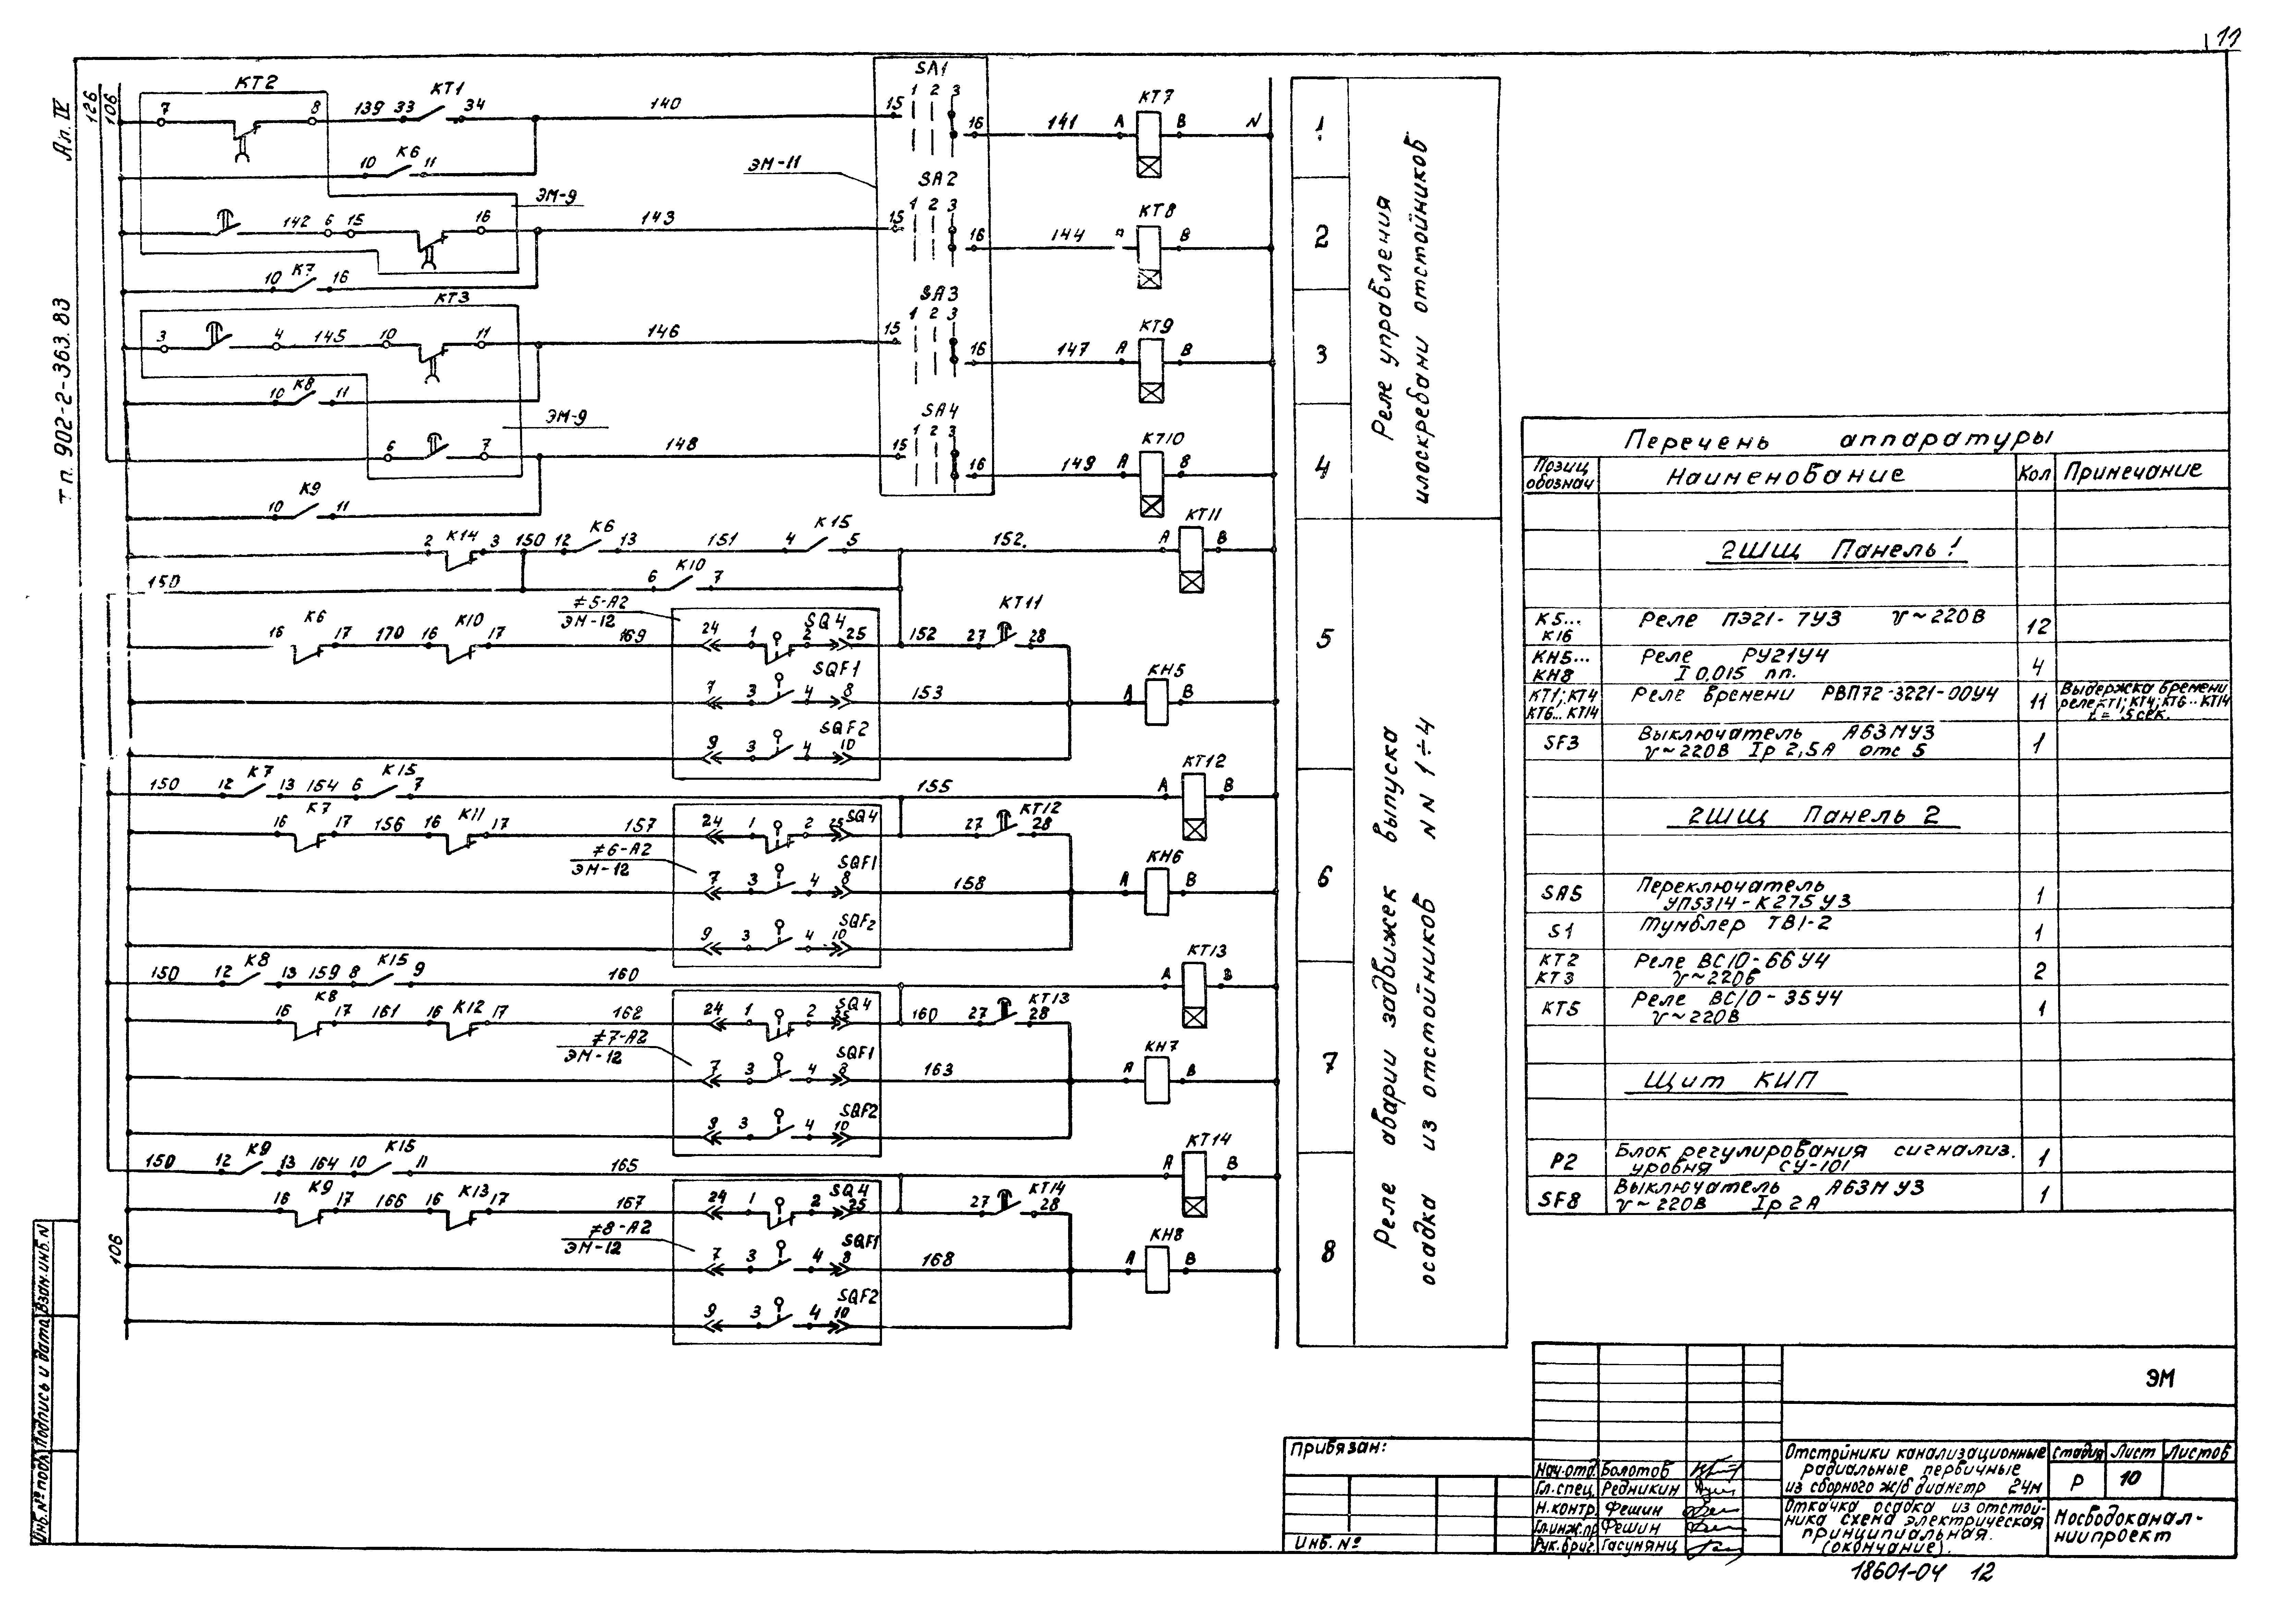 11
Ал. IV
т п. 902-2-363. 83
126
106
КТ2
7
8
139
33
КТ1
34
140
SA1
1 2 3
15
16
141
А
КТ7
В
N
10
К6
11
ЭМ-11
ЭМ-9
142
6
15
16
143
SA2
1 2 3
15
16
144
КТ8
В
10
К7
16
КТ3
3
4
145
10
11
146
SA3
1 2 3
15
16
147
А
КТ9
В
10
К8
11
ЭМ-9
6
7
148
SA4
1 2 3
15
16
149
А
КТ10
В
10
К9
11
2
К14
3
150
12
К6
13
151
4
К15
5
152
А
КТ11
В
150
6
К10
7
≠5-А2
ЭМ-12
16
К6
17
170
16
К10
17
169
24
1
SQ4
2
25
152
27
КТ11
28
7
3
SQF1
4
8
153
А
КН5
В
9
3
SQF2
4
10
150
12
К7
13
154
6
К15
7
155
А
КТ12
В
16
К7
17
156
16
К11
17
157
24
1
2
25
SQ4
27
КТ12
28
≠6-А2
ЭМ-12
7
3
4
SQF1
8
158
А
КН6
В
9
3
4
SQF2
10
150
12
К8
13
159
8
К15
9
160
А
КТ13
В
16
К8
17
161
16
К12
17
162
24
1
2
SQ4
25
160
27
КТ13
28
≠7-А2
ЭМ-12
7
3
4
SQF1
8
163
А
КН7
В
9
3
4
SQF2
10
150
12
К9
13
164
10
К15
11
165
А
КТ14
В
16
К9
17
166
16
К13
17
167
24
1
2
SQ4
25
27
КТ14
28
≠8-А2
ЭМ-12
7
3
4
SQF1
8
168
А
КН8
В
9
3
4
SQF2
10
106
1
2
3
4
5
6
7
8
Реле управления
илоскребами отстойников
Реле аварии задвижек выпуска
осадка из отстойников N N 1÷4
Перечень аппаратуры
Позиц обознач
Наименование
Кол
Примечание
2ШЩ Панель 1
К5... К16
Реле ПЭ21-7У3 V~220В
12
КН5... КН8
Реле РУ21У4
I 0,015 пп.
4
КТ1; КТ4
КТ6... КТ14
Реле времени РВП72-3221-00У4
11
Выдержка времени
реле КТ1; КТ4; КТ6..КТ14
t= 5сек.
SF3
Выключатель А63МУ3
V~220В Iр 2,5А отс 5
1
2ШЩ Панель 2
SA5
Переключатель
УП5314-К275У3
1
S1
Тумблер ТВ1-2
1
КТ2
КТ3
Реле ВС10-66У4
V~220В
2
КТ5
Реле ВС10-35У4
V~220В
1
Щит КИП
Р2
Блок регулирования сигнализ.
уровня СУ-101
1
SF8
Выключатель А63М У3
V~220В Iр 2А
1
ЭМ
Привязан:
Инв. №
Нач.отд. Болотов
Гл.спец. Редникин
Н.контр. Фешин
Гл.инж.пр Фешин
Рук.бриг. Гасунянц
Отстойники канализационные
радиальные первичные
из сборного ж/б диаметр 24м
Стадия Лист Листов
Р 10
Откачка осадка из отстой-
ника схема электрическая
принципиальная.
(окончание).
Мосводоканал-
ниипроект
18601-04 12
Инв.№ подл Подпись и дата Взам.инв.N